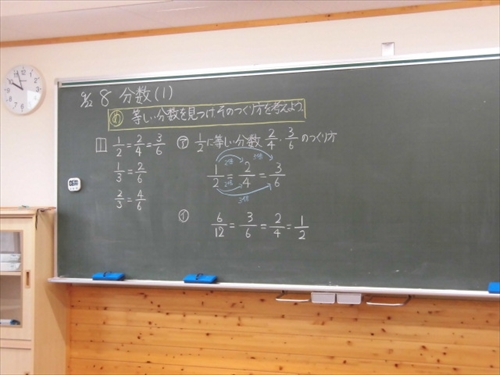 9/2 8 分数(1)
め 等しい分数を見つけ そのつくり方を考えよう
1 1/2 = 2/4 = 3/6
1/3 = 2/6
2/3 = 4/6
ア 1/2に等しい分数 2/4, 3/6 のつくり方
1/2 = 2/4 = 3/6
イ 6/12 = 3/6 = 2/4 = 1/2